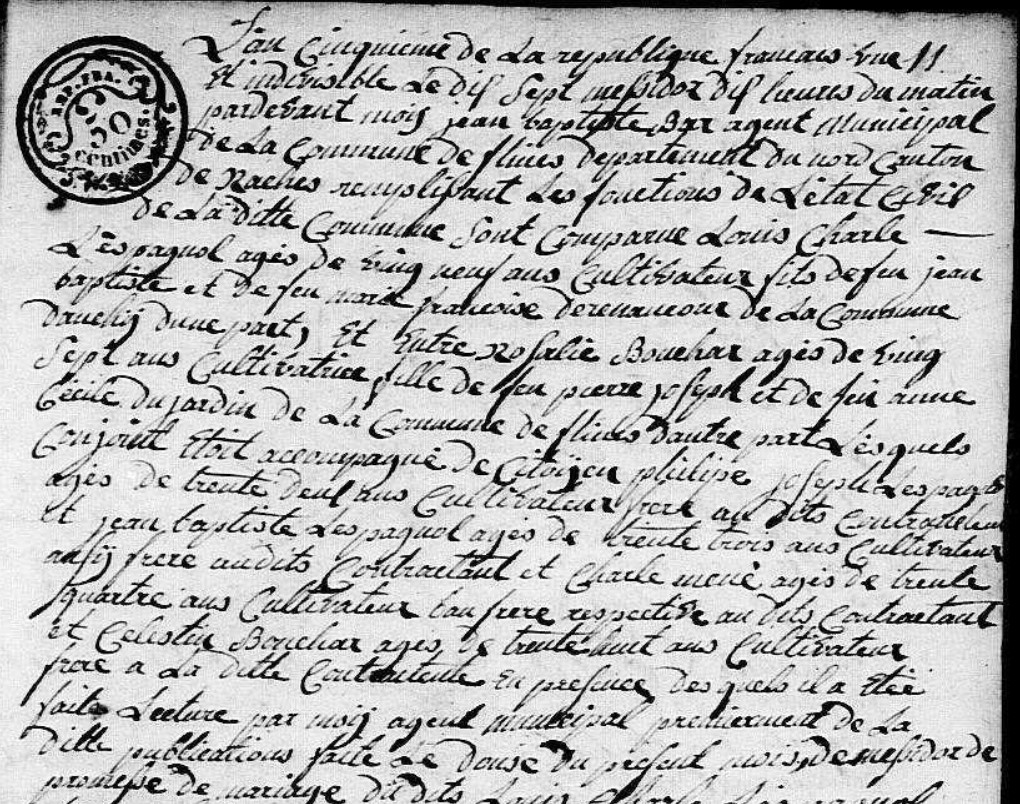 REP. FRA.
50
centimes.
L'an Cinquieme de La republique francais une
Et indivisible Le dis Sept messidor dis heures du matin
pardevant moij jean baptiste Bar agent Municipal
de La Commune de flines departement du nord Canton
de Raches remplissant Les fonctions de L'etat Civil
de La ditte Commune Sont Comparue Louis Charle
L'espagnol agés de ving neuf ans Cultivateur fils de feu jean
baptiste et de feu marie francoise derenaucour de La Commune
dauchij dune part, Et Entre Rosalie Bouchar agés de ving
Sept ans Cultivatrice fille de feu pierre joseph et de feu anne
Cécile dujardin de La Commune de flines dautre part Lesquels
Conjoint Etoit accompagné de Citoÿen philipe joseph Lespagnol
agés de trente deus ans Cultivateur frere au dits Contractant
et jean baptiste Lespagnol agés de trente trois ans Cultivateur
ausij frere audits Contractant et Charle agés de trente
quartre ans Cultivateur bau frere respective au dits Contractant
et Celestin Bouchar agés de trente huit ans Cultivateur
frere a La ditte Contractente En presence desquels il a Etéé
faite Lecture par moij agent municipal premierement de La
ditte publications faite Le douse du present mois de messidor de
promesse de mariage du dits Louis Charle Lespagnol